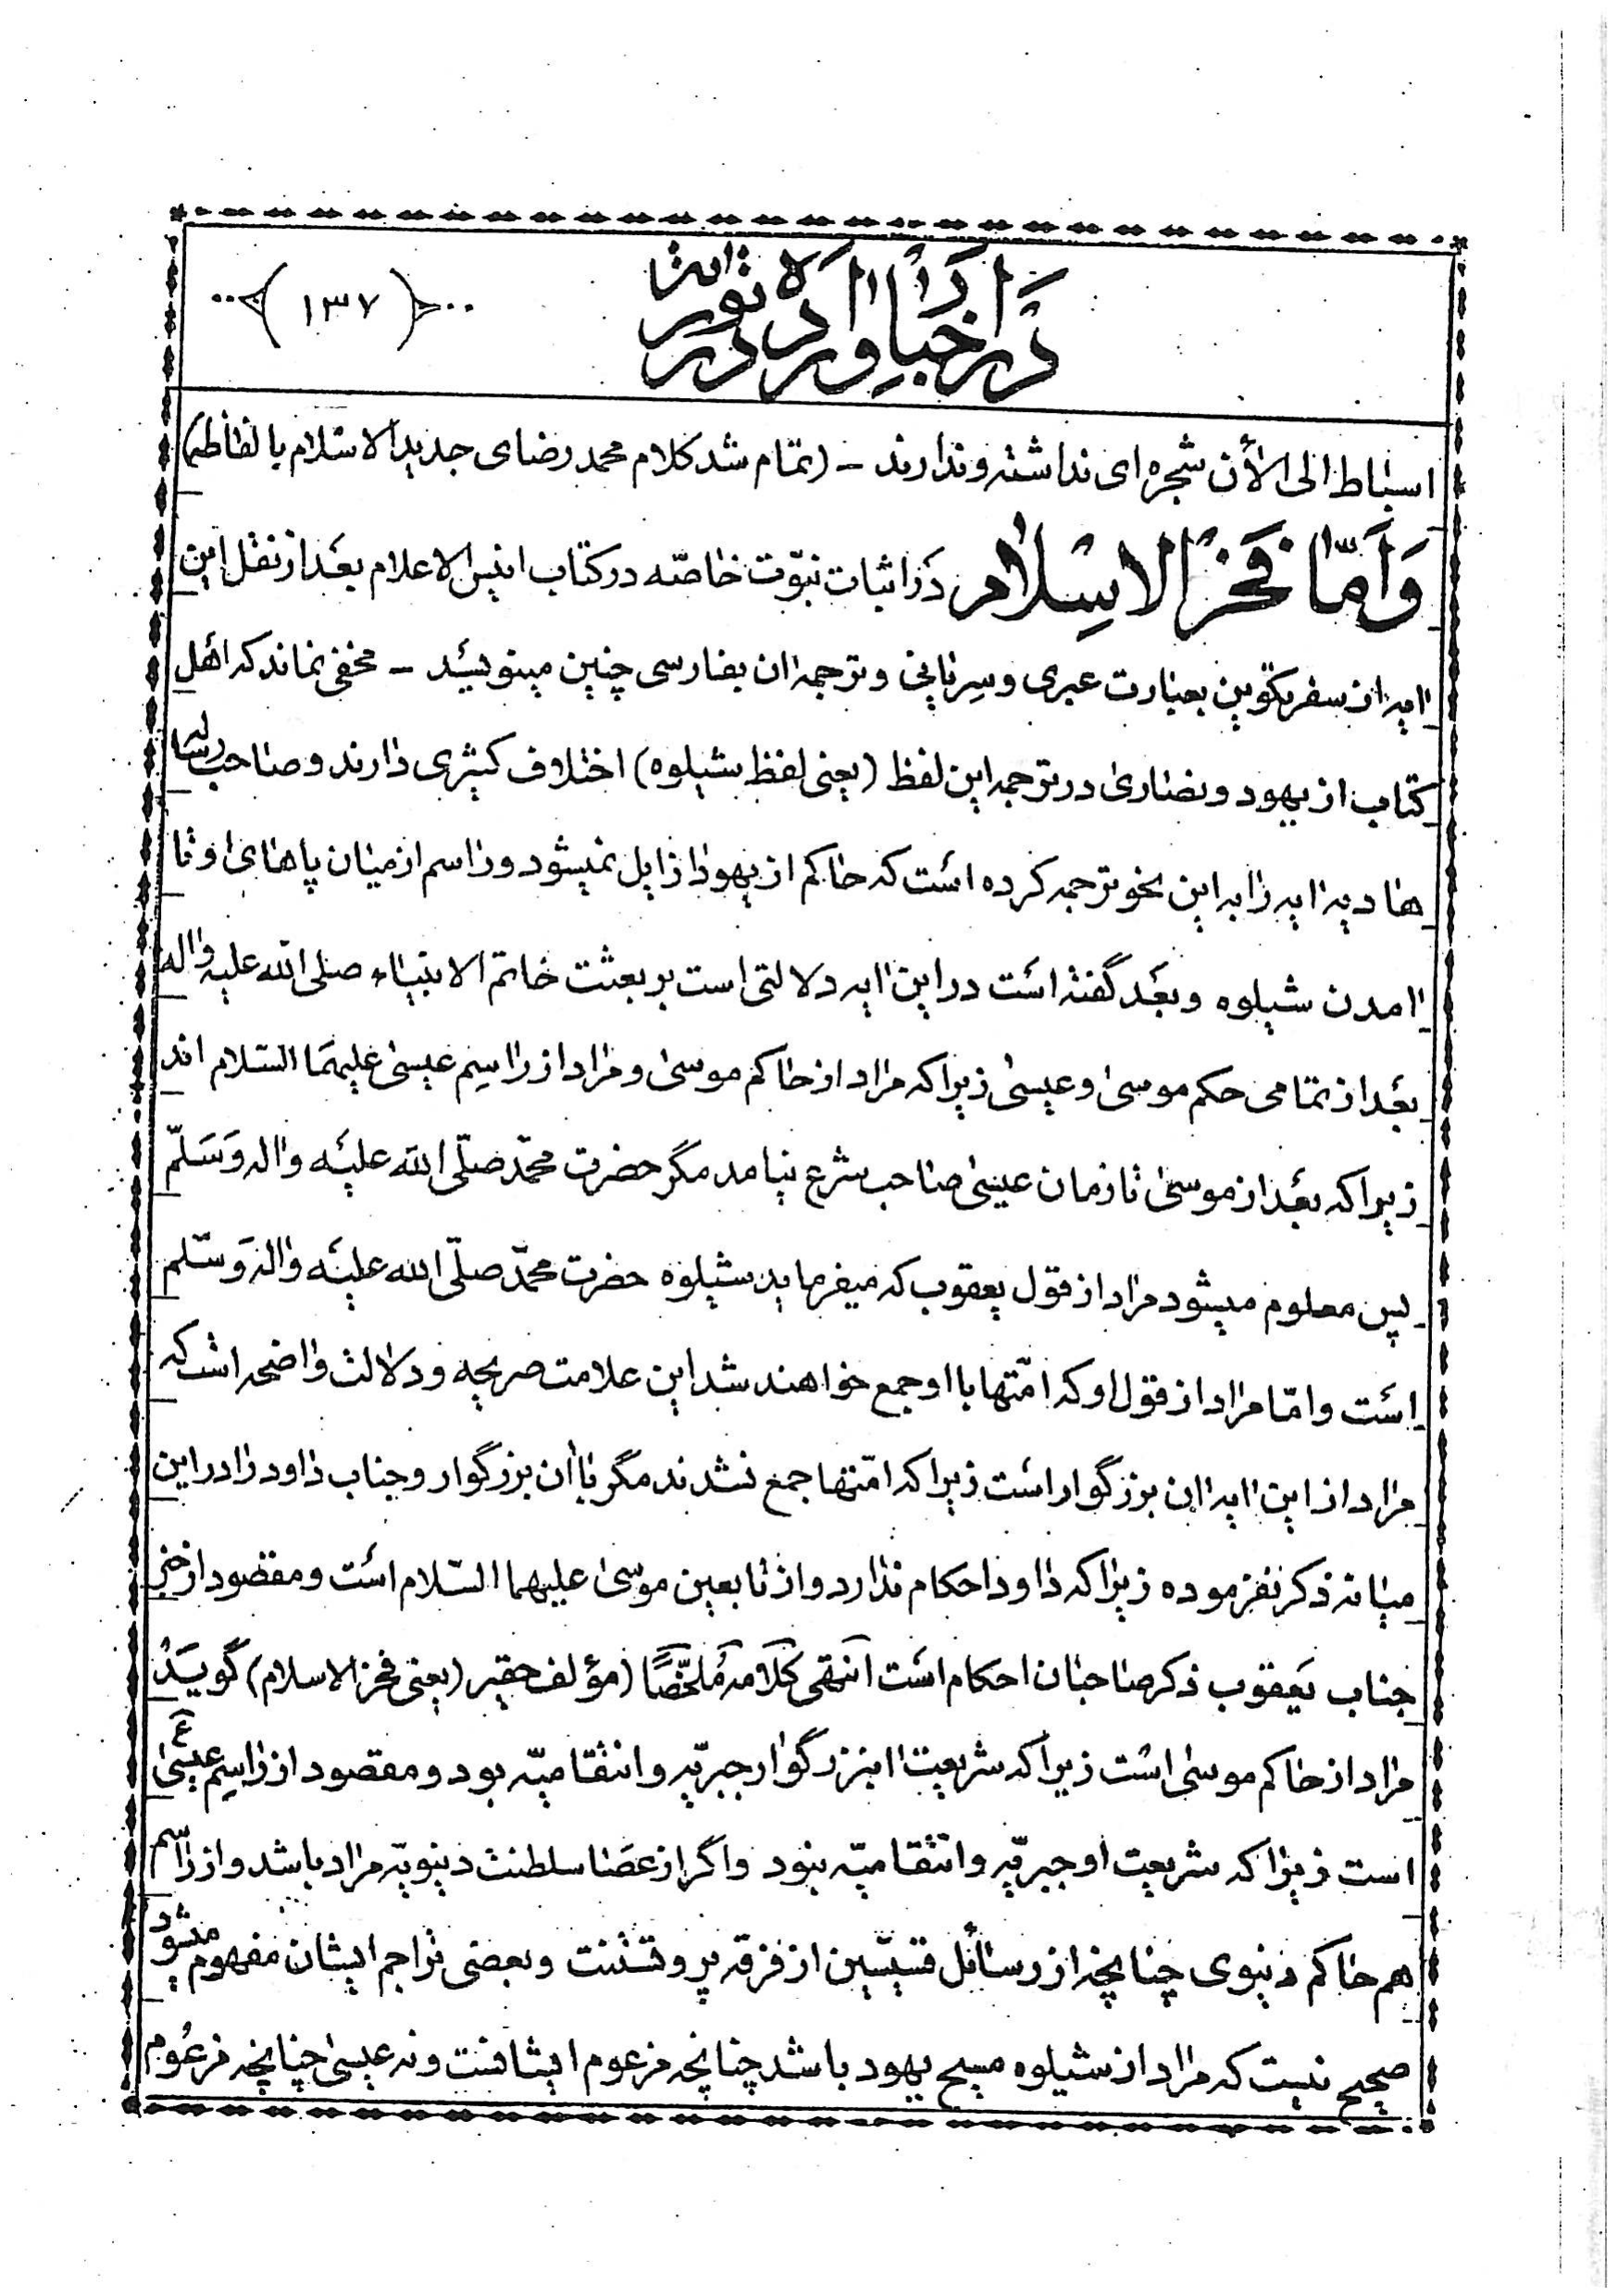 در اخبار وارده در تورات
(۱۳۷)
اسباط الی الأن شجره ای نداشته و ندارند - (تمام شد کلام محمد رضای جدید الاسلام بالفاظه)
وَاَمّا فَخرُ الاسِلام در اثبات نبوّت خاصّه در کتاب انیس الاعلام بعد از نقل این
ایه از سفر تکوین بعبارت عبری و سریانی و ترجمه ان بفارسی چنین مینویسد - مخفی نماند که اهل
کتاب از یهود و نصاری در ترجمه این لفظ (یعنی لفظ شیلوه) اختلاف کثیری دارند و صاحب رساله
هادیه ایه را به این نحو ترجمه کرده است که حاکم از یهودا زایل نمیشود و راسم از میان پاهای او تا
امدن شیلوه و بعد گفته است در این ایه دلالتی است بر بعثت خاتم الانبیاء صلی الله علیه و اله
بعد از تمامی حکم موسی و عیسی زیرا که مراد از حاکم موسی و مراد از راسِم عیسی علیهمَا السّلام اند
زیرا که بعد از موسی تا زمان عیسی صاحب شرع نیامد مگر حضرت محمّد صلّی الله علیه و اله وَسَلّم
پس معلوم میشود مراد از قول یعقوب که میفرماید شیلوه حضرت محمّد صلّی الله علیه و اله وَ سّلم
است و امّا مراد از قول او که امّتها با او جمع خواهند شد این علامت صریحه و دلالت واضحه است که
مراد از این ایه ان بزرگوار است زیرا که امّتها جمع نشدند مگر با ان بزرگوار و جناب داود را در این
میانه ذکر نفرموده زیرا که داود احکام ندارد و از تابعین موسی علیهما السّلام است و مقصود از خبر
جناب یَعقوب ذکر صاحبان احکام است اَنتهی کَلامه مُلَخّصًا (مؤلف حقیر (یعنی فخر الاسلام) گویَد
مراد از حاکم موسی است زیرا که شریعت انبزرگوار جبریّه و انتقامیّه بود و مقصود از راسِم عیسی ع
است زیرا که شریعت او جبریّه و انتقامیّه نبود و اگر از عصَا سلطنت دنیویّه مراد باشد و از راسم
هم حاکم دنیوی چنانچه از رسائل قسیّسین از فرقه پروتستنت و بعضی تراجم ایشان مفهوم میشود
صحیح نیست که مراد از شیلوه مسیح یهود باشد چنانچه مزعوم ایشانست و نه عیسی چنانچه مزعُوم